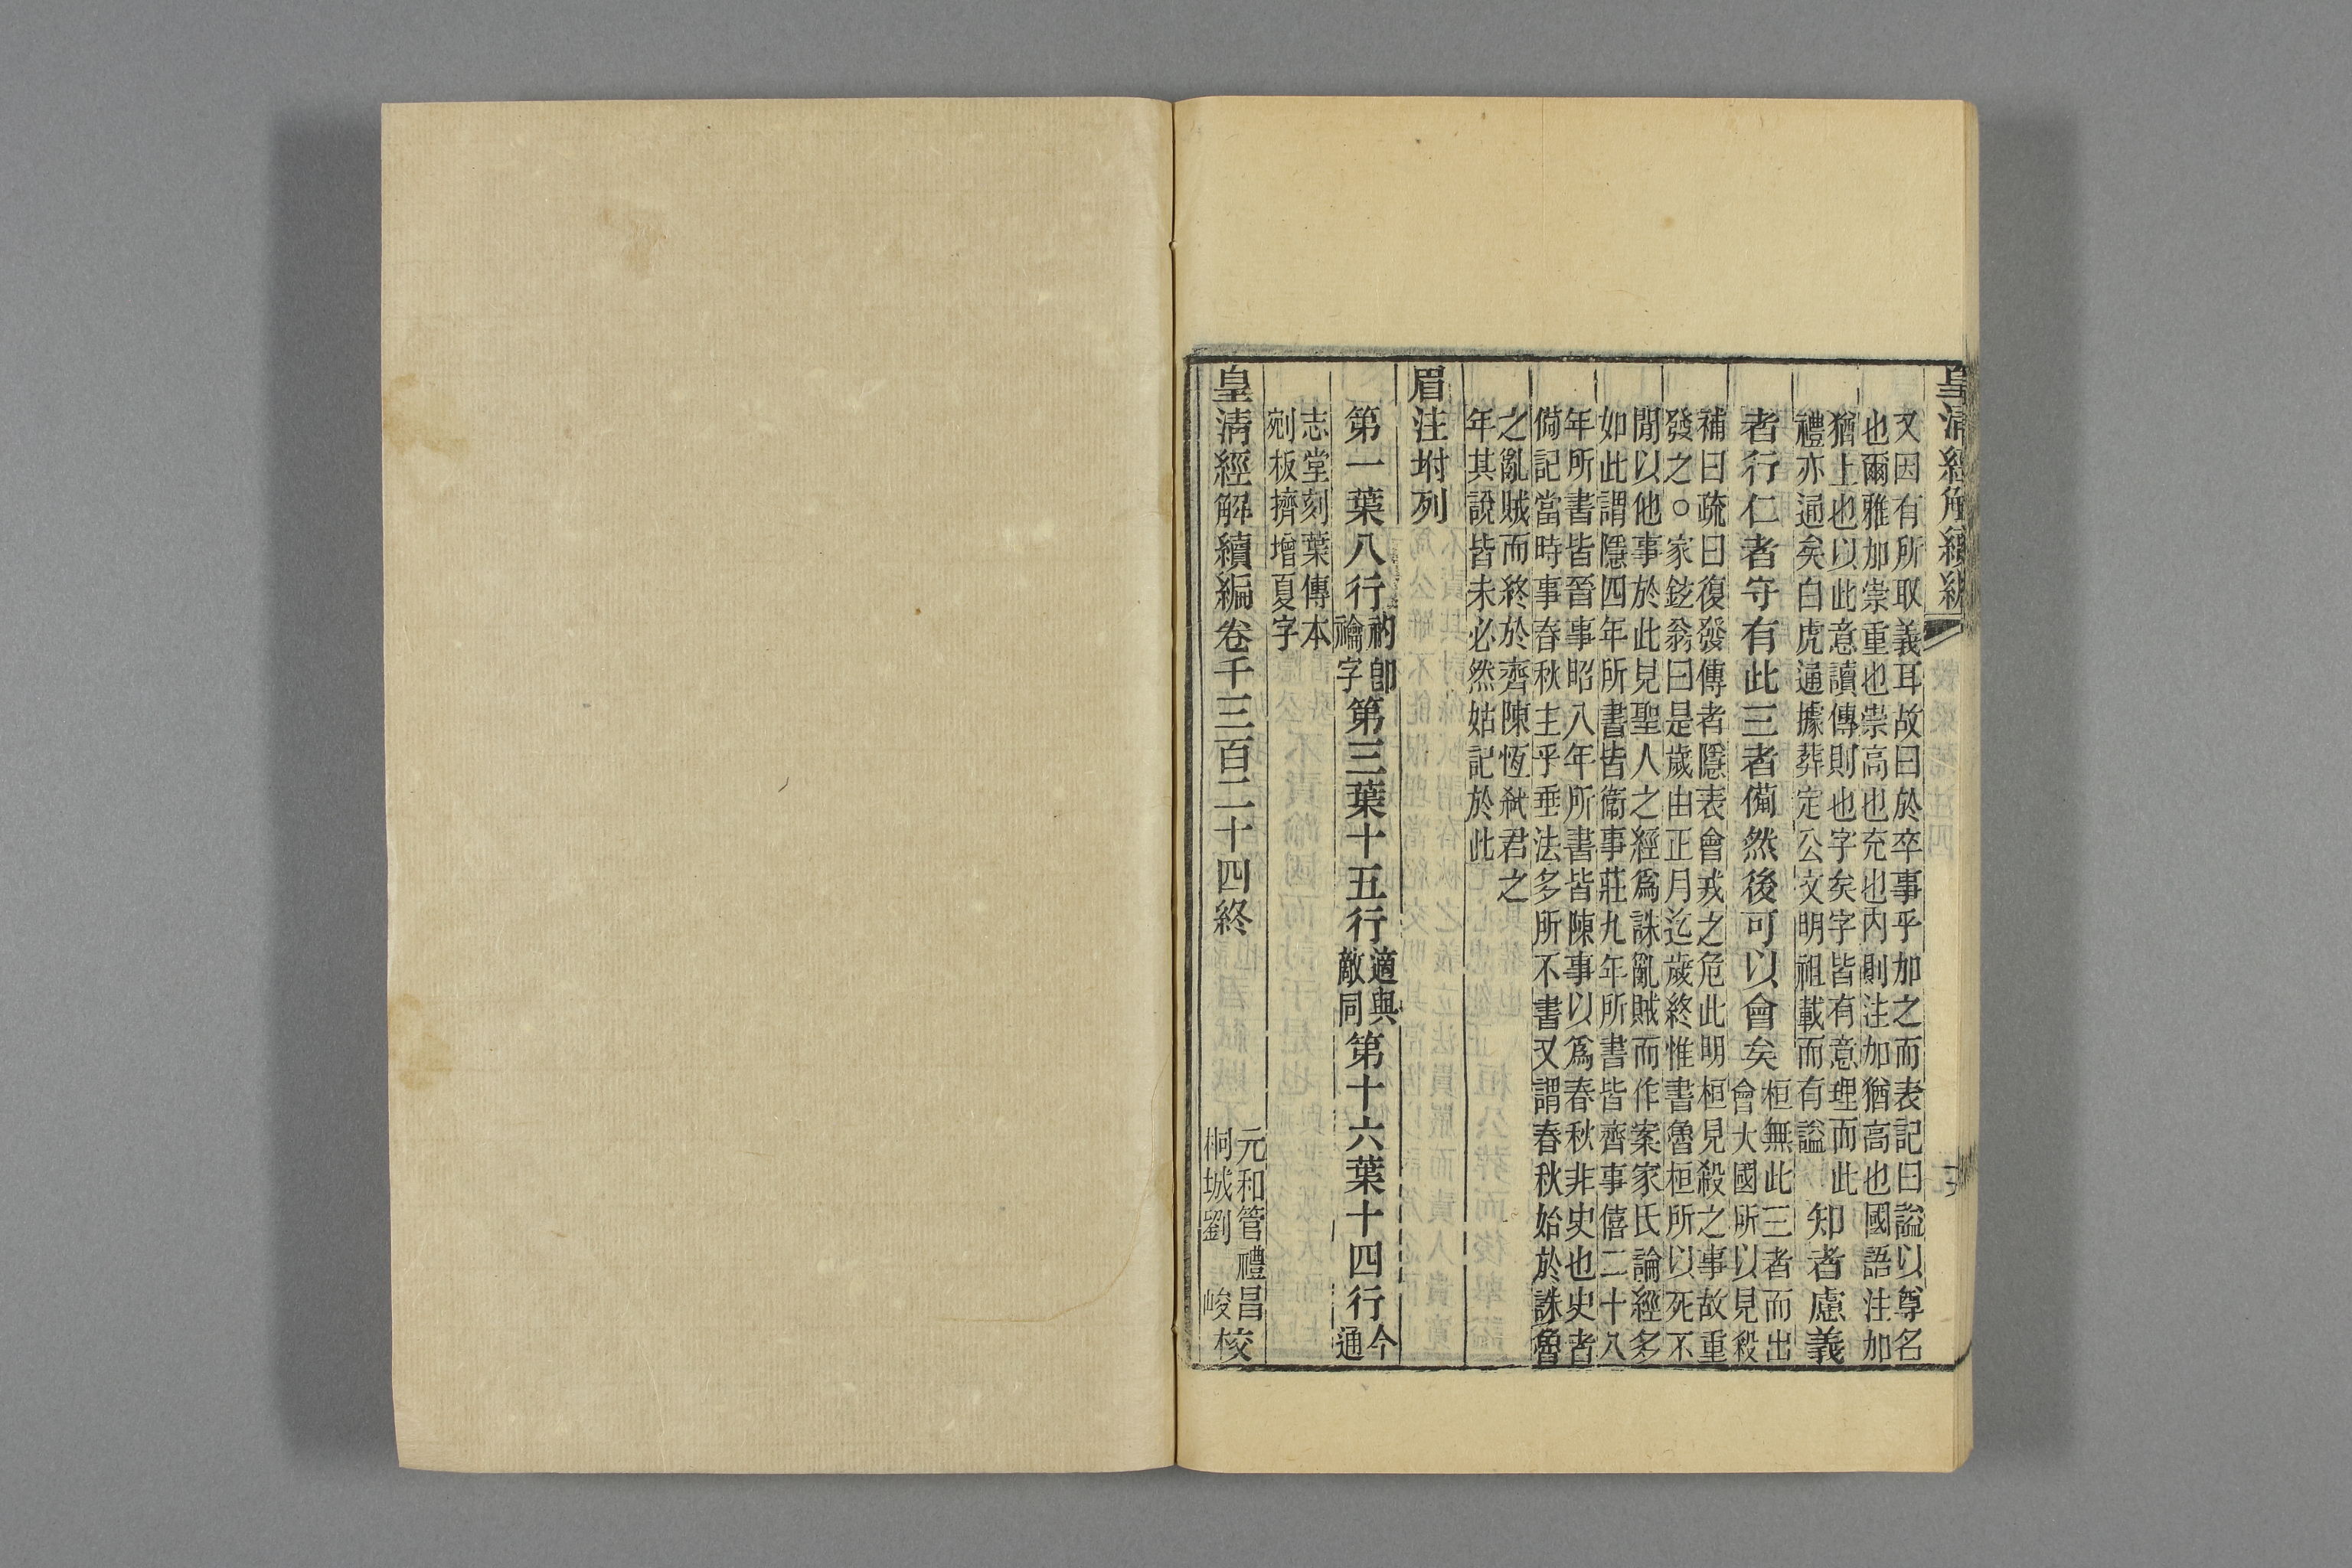 皇清經解續編
又因有所取義耳故曰於卒事乎加之而表記曰謚以尊名
也爾雅加崇重也崇高也充也內則注加猶高也國語注加
猶上也以此意讀傳則也字矣字皆有意理而此
禮亦通矣白虎通據葬定公文明祖載而有謚
知者慮義
者行仁者守有此三者備然後可以會矣
桓無此三者而出
會大國所以見殺
補曰疏曰復發傳者隱表會戎之危此明桓見殺之事故重
發之○家鉉翁曰是歲由正月迄歲終惟書魯桓所以死不
閒以他事於此見聖人之經爲誅亂賊而作案家氏論經多
如此謂隱四年所書皆衞事莊九年所書皆齊事僖二十八
年所書皆晉事昭八年所書皆陳事以爲春秋非史也史者
備記當時事春秋主乎垂法多所不書又謂春秋始於誅魯
之亂賊而終於齊陳恆弑君之
年其說皆未必然姑記於此
眉注坿列
第一葉八行
礿卽
禴字
第三葉十五行
適與
敵同
第十六葉十四行
今
通
志堂刻葉傳本
剜板擠增夏字
皇清經解續編卷千三百二十四終
元和管禮昌
桐城劉 峻
校